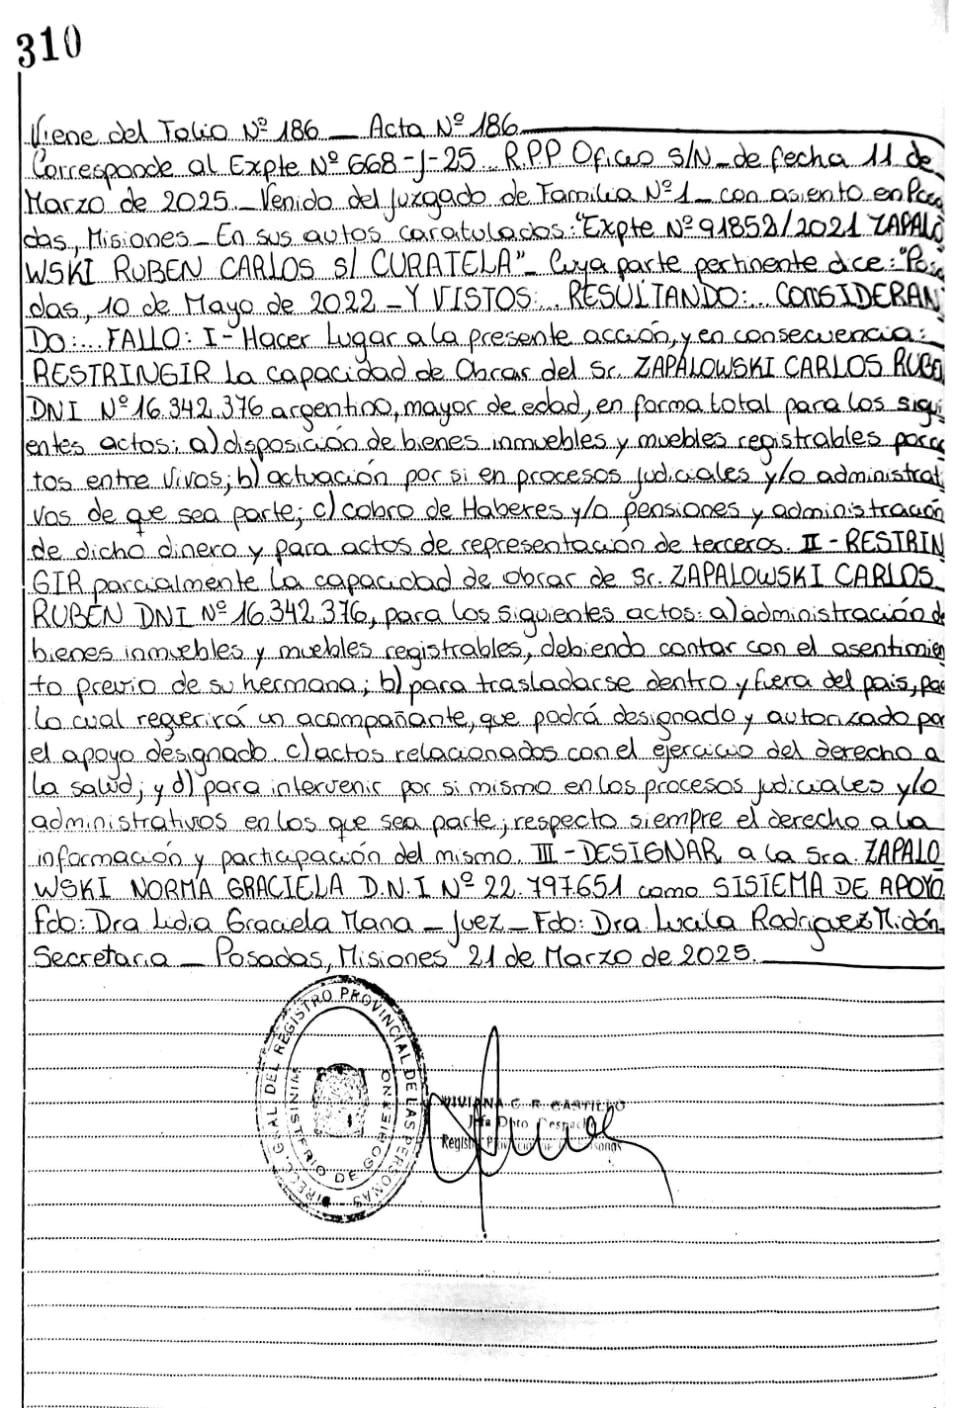 310
Viene del Folio Nº 186 _ Acta Nº 186
Corresponde al Expte Nº 668-J-25. R.P.P Oficio S/N_de fecha 11 de
Marzo de 2025._Venido del Juzgado de Familia Nº 1_ con asiento en Posa
das, Misiones_En sus autos caratulados: "Expte Nº 91852/2021 ZAPALO
WSKI RUBEN CARLOS S/ CURATELA"_ Cuya parte pertinente dice: "Posa
das, 10 de Mayo de 2022 - Y VISTOS:... RESULTANDO:... CONSIDERAN
DO:... FALLO: I- Hacer Lugar a la presente acción, y en consecuencia:
RESTRINGIR La capacidad de Obrar del Sr. ZAPALOWSKI CARLOS RUBE
DNI Nº 16.342.376 argentino, mayor de edad, en forma total para los sigui
entes actos; a) disposición de bienes inmuebles y muebles registrables por ac
tos entre vivos; b) actuación por si en procesos judiciales y/o administrati
vos de que sea parte; c) cobro de Haberes y/o pensiones y administración
de dicho dinero y para actos de representación de terceros. II - RESTRIN
GIR parcialmente La capacidad de obrar de Sr. ZAPALOWSKI CARLOS
RUBEN DNI Nº 16.342.376, para los siguientes actos: a) administración de
bienes inmuebles y muebles registrables, debiendo contar con el asentimien
to previo de su hermana; b) para trasladarse dentro y fuera del pais, pa
lo cual requerirá un acompañante, que podrá designado y autorizado por
el apoyo designado. c) actos relacionados con el ejercicio del derecho a
la salud; y d) para intervenir por si mismo en los procesos judiciales y/o
administrativos en los que sea parte; respecto siempre el derecho a la
información y participación del mismo. III - DESIGNAR a la Sra. ZAPALO
WSKI NORMA GRACIELA D.N.I Nº 22.797.651 como SISTEMA DE APOYO
Fdo: Dra Lidia Graciela Mana - Juez - Fdo: Dra. Lucila Rodriguez Midón.
Secretaria _ Posadas, Misiones 21 de Marzo de 2025.
DIRECC. GRAL DEL REGISTRO PROVINCIAL DE LAS PERSONAS
MINISTERIO DE GOBIERNO
VIVIANA C. R. CASTILLO
Jefa Dpto Despacho